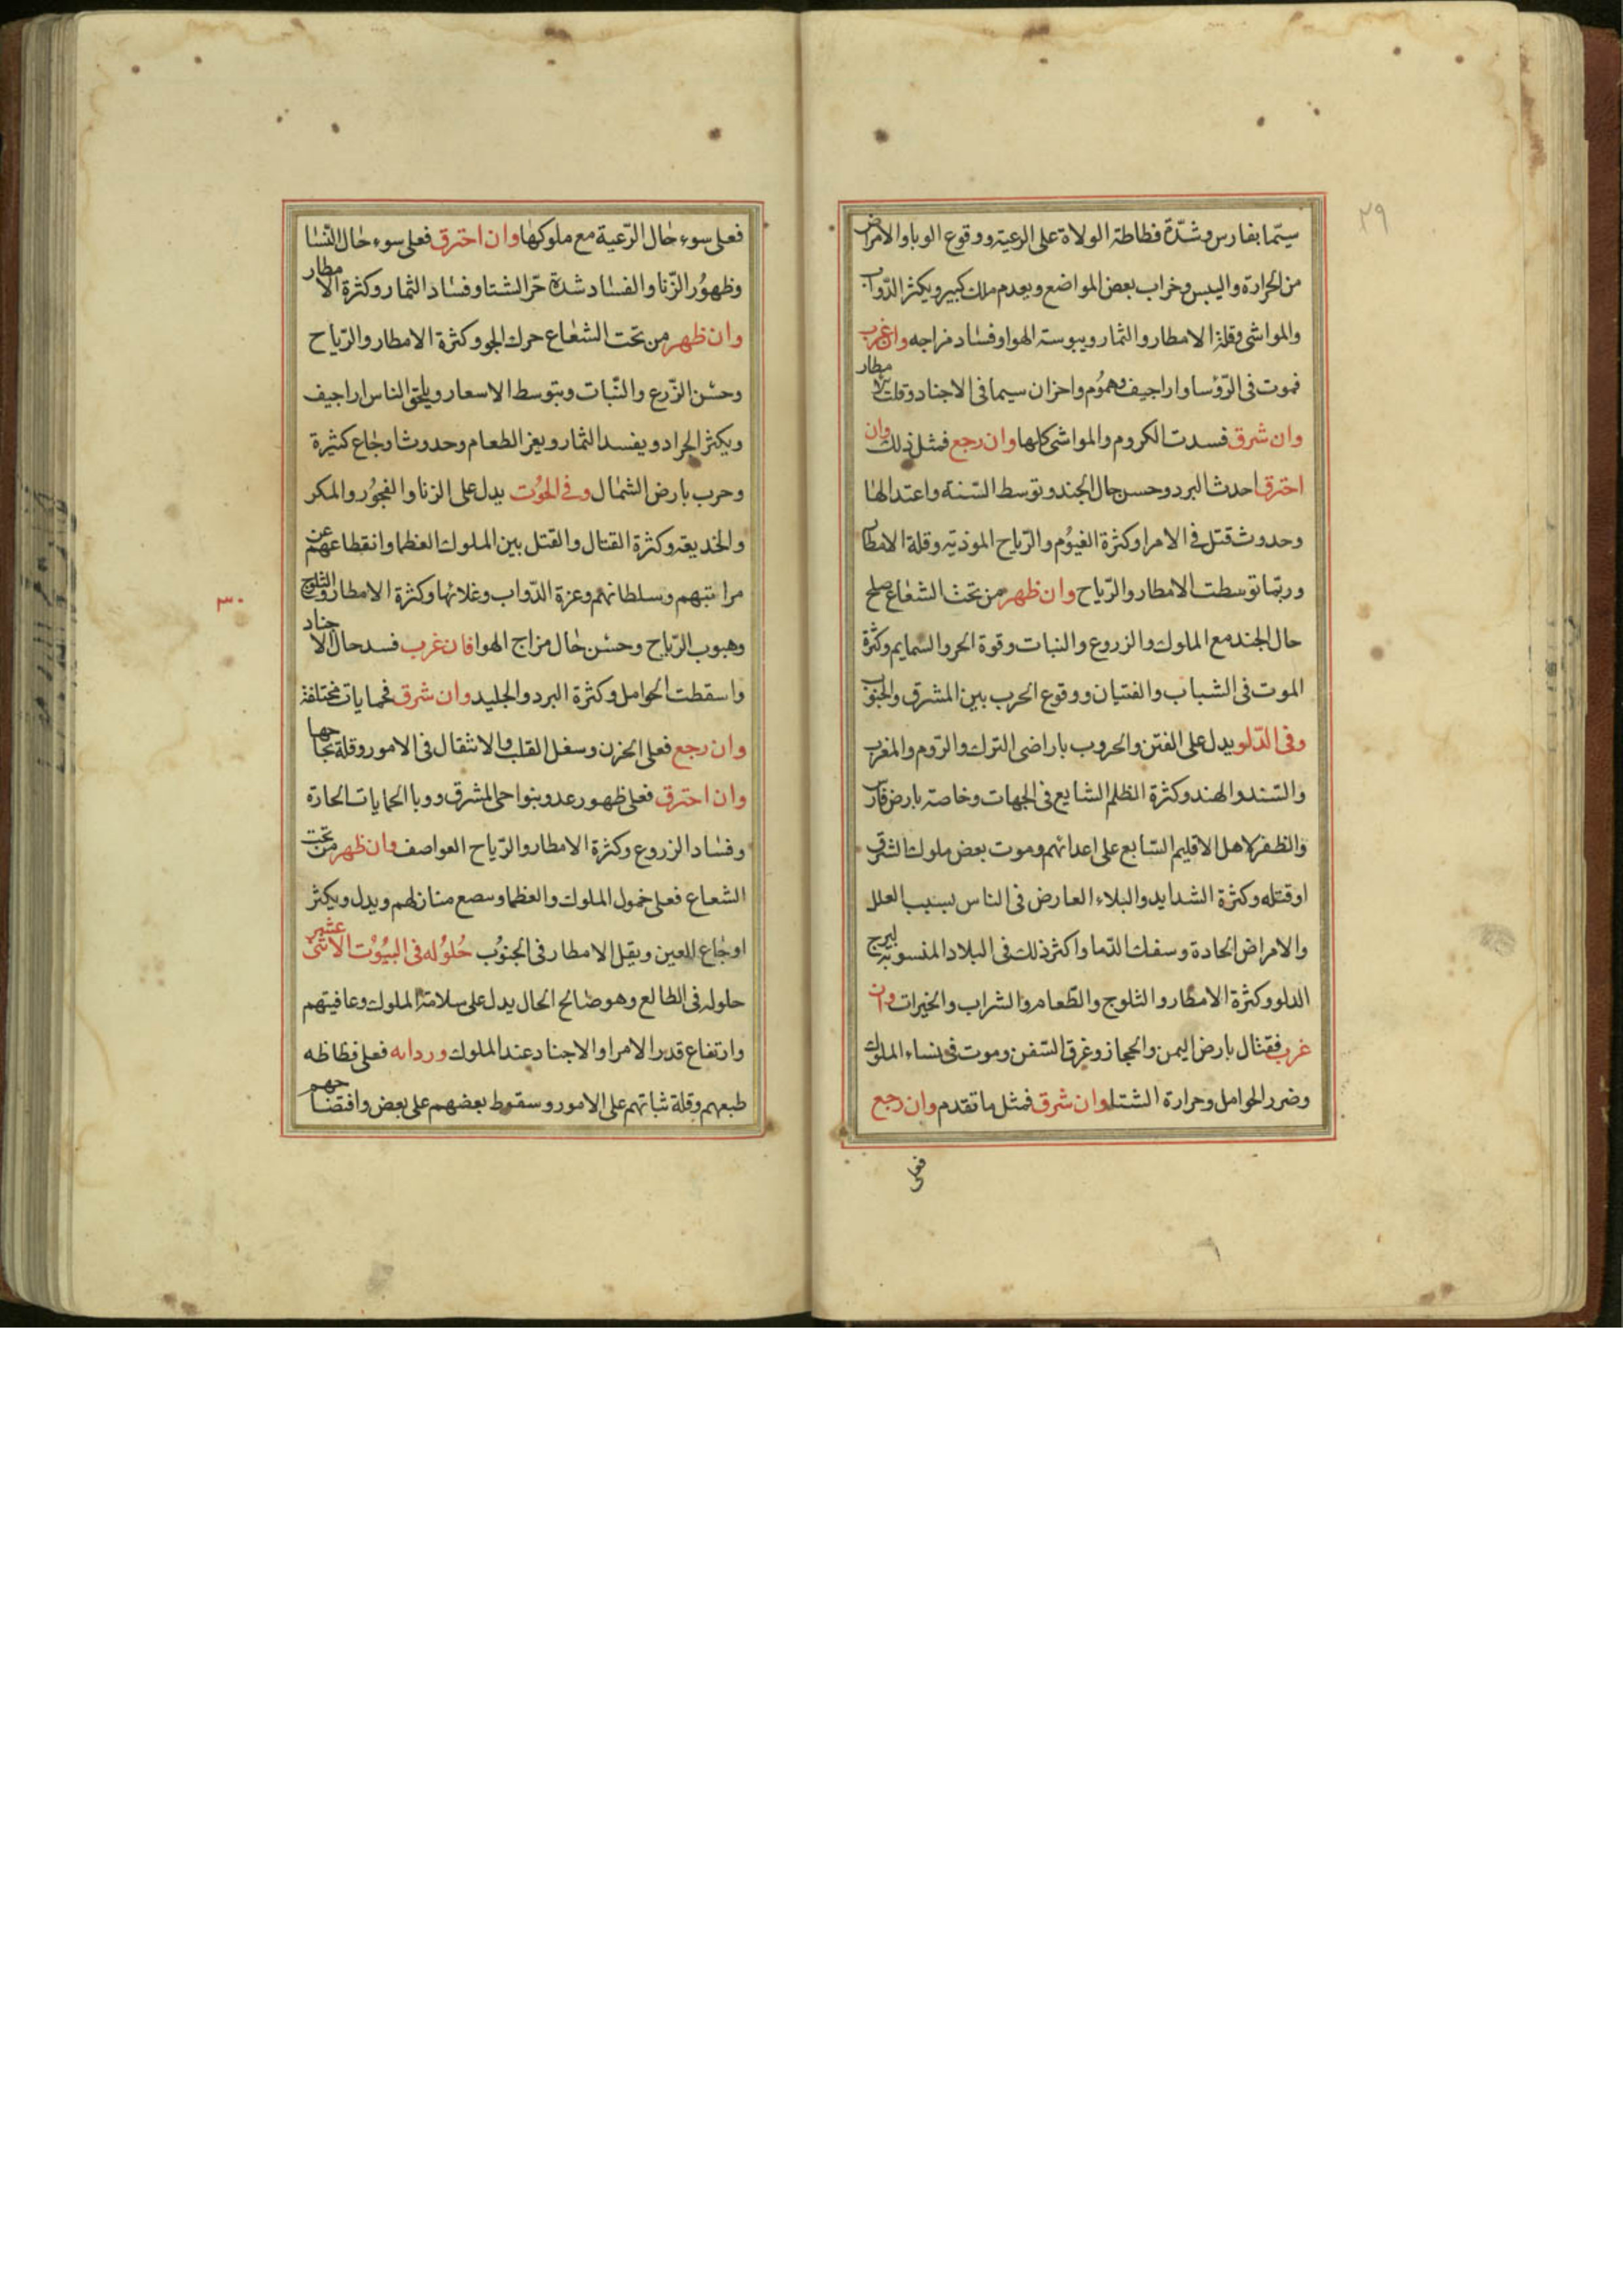 ٢٩
سيّما بفارس وشدّة فظاظة الولاة على الرعية ووقوع الوبا والامراض
من الحرارة واليبس وخراب بعض المواضع ويعدم ملك كبير ويكثر الدّواب
والمواشى وقلة الامطار والثمار ويبوسة الهوا وفساد مزاجه وان غرب
فموت فى الرّؤسا واراجيف وهموم واحزان سيما فى الاجناد وقلت الامطار
وان شرق فسدت الكروم والمواشى كلها وان رجع فمثل ذلك وان
احترق احدث البرد وحسن حال الجند وتوسط السّنة واعتدالها
وحدوث قتل فى الامرا وكثرة الغيوم والرّياح الموذية وقلة الامطار
وربّما توسطت الامطار والرّياح وان ظهر من تحت الشعاع صلح
حال الجند مع الملوك والزروع والنبات وقوة الحر والسمايم وكثرة
الموت فى الشباب والفتيان ووقوع الحرب بين المشرق والجنوب
وفى الدّلو يدل على الفتن والحروب باراضى الترك والرّوم والمغرب
والسّند والهند وكثرة الظلم الشايع فى الجهات وخاصة بارض فارس
والظفر لاهل الاقليم السّابع على اعدائهم وموت بعض ملوك الشرق
او قتله وكثرة الشدايد والبلاء العارض فى الناس بسبب العلل
والامراض الحادة وسفك الدّما واكثر ذلك فى البلاد المنسوبة لبرج
الدلو وكثرة الامطار والثلوج والطّعام والشراب والخيرات وان
غرب فقتال بارض اليمن والحجاز وغرق السّفن وموت فى نساء الملوك
وضرر الحوامل وحرارة الشتا وان شرق فمثل ما تقدم وان رجع
فعلى
فعلى سوء حال الرّعية مع ملوكها وان احترق فعلى سوء حال النّسا
وظهور الزّنا والفساد شدة حرّ الشتا وفساد الثمار وكثرة الامطار
وان ظهر من تحت الشعاع حرك الجو وكثرة الامطار والرّياح
وحسن الزّرع والنّبات ويتوسط الاسعار ويلحق الناس اراجيف
ويكثر الجراد ويفسد الثمار ويعز الطعام وحدوث اوجاع كثيرة
وحرب بارض الشمال وفى الحوت يدل على الزنا والفجور والمكر
والخديعة وكثرة القتال والقتل بين الملوك العظما وانقطاعهم عن
مراتبهم وسلطانهم وعزة الدّواب وغلائها وكثرة الامطار والثلوج
وهبوب الرّياح وحسن حال مزاج الهوا فان غرب فسد حال الاجناد
واسقطت الحوامل وكثرة البرد والجليد وان شرق فحمايات مختلفة
وان رجع فعلى الحزن وسغل القلب والانتقال فى الامور وقلة نجاحها
وان احترق فعلى ظهور عدو بنواحى المشرق ووبا الحمايات الحارة
وفساد الزروع وكثرة الامطار والرّياح العواصف وان ظهر من تحت
الشعاع فعلى خمول الملوك والعظما منازلهم ويدل ويكثر
اوجاع العين ويقل الامطار فى الجنوب حلوله فى البيوت الاثنى عشر
حلوله فى الطالع وهو صالح الحال يدل على سلامة الملوك وعافيتهم
وارتفاع قدر الامرا والاجناد عند الملوك ورداىه فعلى فظاظه
طبعهم وقلة ثباتهم على الامور وسقوط بعضهم على بعض وافتضاحهم
٣٠